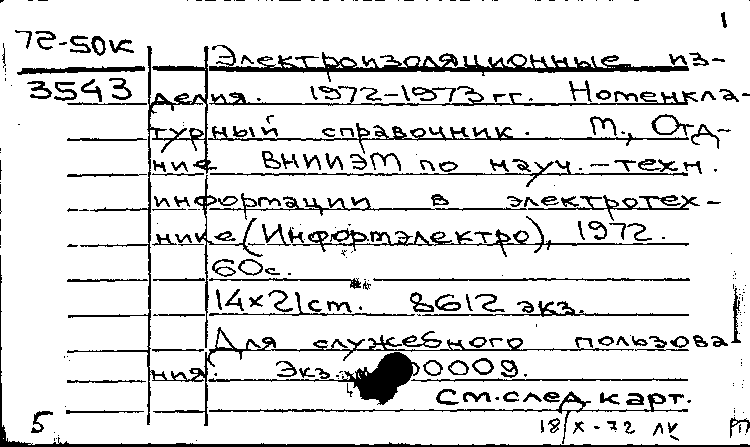 1
72-50к
Электроизоляционные из-
3543 делия. 1972-1973 гг. Номенкла-
турный справочник. М., Отд-
ние ВНИИЭМ по науч.-техн.
информации в электротех-
нике (Информэлектро), 1972.
60с.
14×21см. 8612 экз.
Для служебного пользова
ния. Экз. 00009.
См. след. карт.
5 18/X-72 ЛК